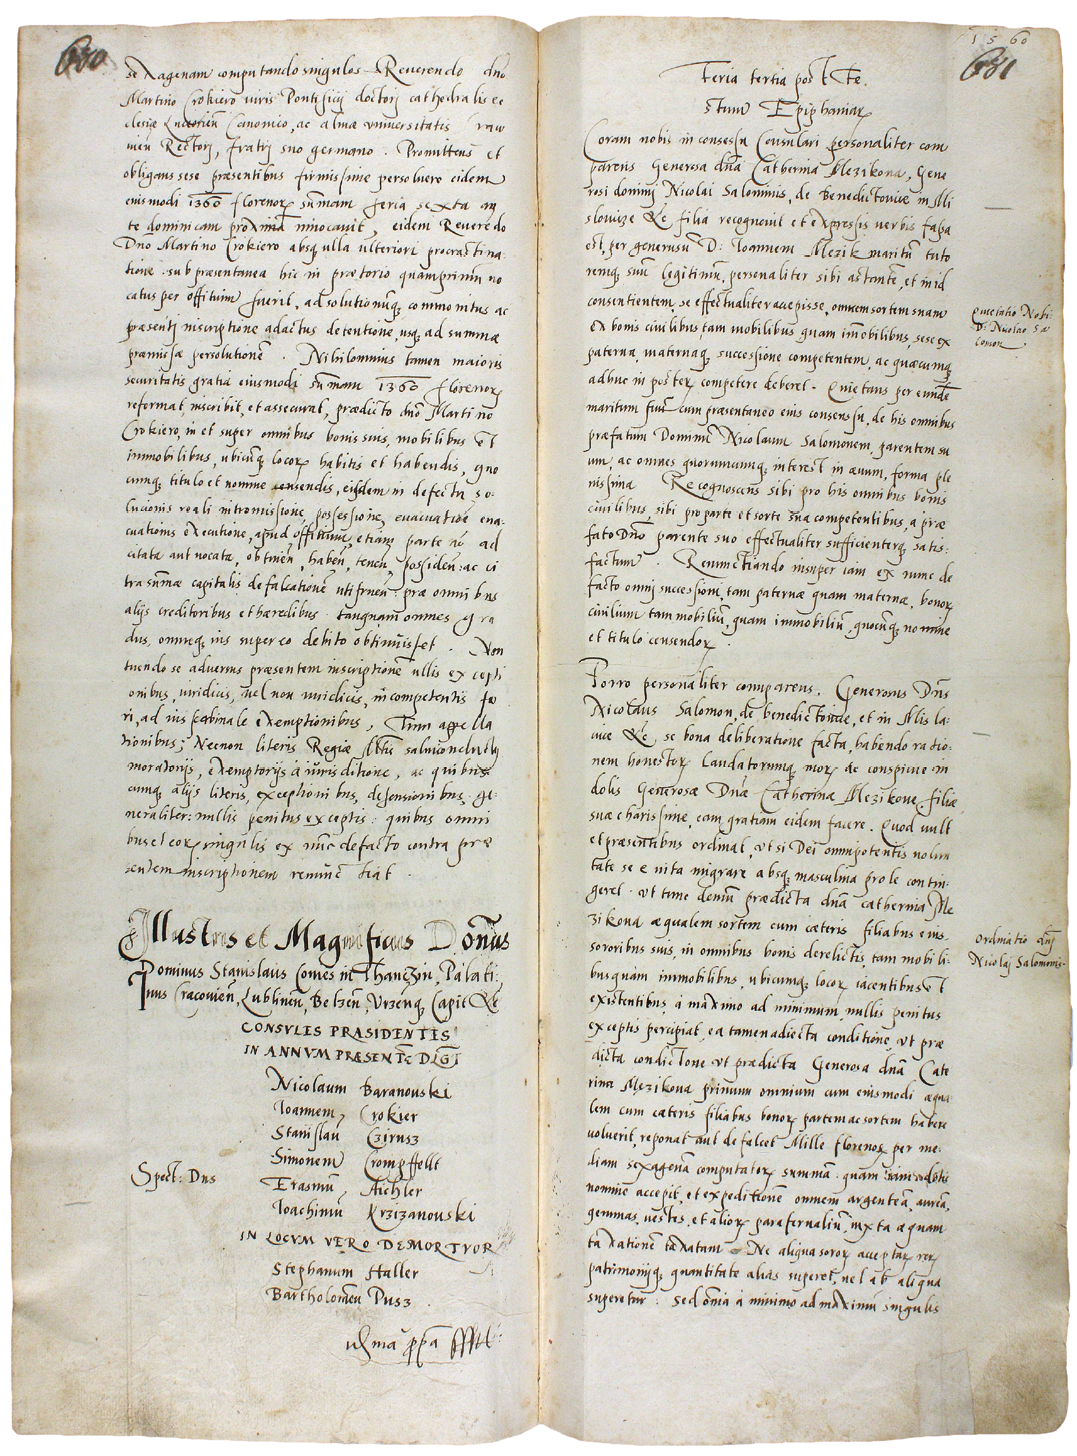 680
sexagenam computando singulos Reverendo dno
Martino Crokiero viris Pontificij doctorj cathedralis ec
clesiæ Canonico, ac almæ universitatis Craco
uien Rectorj, fratrj suo germano. Promittens et
obligans sese præsentibus firmissime persoluere eidem
eiusmodi 1360 florenorꝝ sum̄am feria sexta an
te dominicam proximā Inuocauit, eidem Reueredo
Dno Martino Crokiero absqꝫ ulla ulteriori procrastina:
tione. sub præsentanea hic in prætorio quamprimū vo
catus per offitium fuerit, ad solutionūqꝫ commonitus ac
præsentj inscriptione adactus detentione, usqꝫ ad summæ
præmissæ persolutionē. Nihilominus tamen maioris
securitatis gratia eiusmodi sum̄am 1360 florenorꝝ
reformat, inscribit, et assecurat, prædicto dnō Martino
Crokiero, in et super omnibus bonis suis, mobilibus et
immobilibus, ubicūqꝫ locorꝝ habitis et habendis, quo
cumqꝫ titulo et nomine censendis, eisdem in defectu so
lucionis reali intromissione, possessione, euacuatiōe eua:
cuationis executione, apud offitium, etiam parte nō ad
citata aut uocata, obtinēn, habēn, tenēn, possidēn: ac ci
tra sum̄æ capitalis defalcationē utifruēn: præ omnibus
alijs creditoribus et hæredibus. tanquam omnes gra
dus, omneqꝫ ius super eo debito obtinuisset. Non
tuendo se aduersus præsentem inscriptionē ullis excepti
onibus, iuridicis, uel non iuridicis, incompetentis fo
ri, ad ius exemptionibus, Tum appella
tionibus; Necnon literis Regiæ Mtis salui conductus
moratorijs, exemptorijs à iurisditione, ac quibus
cumqꝫ alijs literis, exceptionibus, defensionibus. ge:
neraliter: nullis penitus exceptis: quibus omni
bus et eorꝝ singulis ex nūc defacto contra præ
sentem inscriptionem renunctiat.
Illustris et Magnificus Dominus
Dominus Stanislaus Comes in Thanczin, Palati:
nus Cracouieñ, Lublineñ, Belzeñ, Vrzēnqꝫ Capit &c
CONSVLES PRÆSIDENTES
IN ANNVM PRÆSENTĒ DLGT
Spect: Dns
Nicolaum Baranouski
Ioannem, Crokier
Stanislaū Czirusz
Simonem Crompffollt
Erasmū, Aichler
Ioachimū Krzizanouski
IN LOCVM VERO DEMORTVORꝝ
Stephanum Haller
Bartholomeū Pusz.
1560
681
Feria tertia post Fe.
stum Epiphaniarꝝ
Coram nobis in consessu Consulari personaliter com
parens Generosa dnā Catherina Mezikona, Gene
rosi dominj Nicolai Salominis, de Benedictouice in Mi
slouicze &c filia recognouit et expressis verbis fassa
est, per generosū D: Ioannem Mezik maritū tuto
remqꝫ suū legitimū, personaliter sibi astantē, et in id
consentientem, se effectualiter accepisse, omnem sortem suam
ex bonis ciuilibus, tam mobilibus quam im̄obilibus, sese ex
paterna, maternaqꝫ successione competentem, ac quæcumqꝫ
adhuc in posterꝝ competere deberet. Quietans per eundē
maritum suū cum præsentaneo eius consensu, de his omnibus
præfatum Dominū Nicolaum Salomonem, parentem su
um, ac omnes quorumcumqꝫ interest in æuum, forma ple
nissima. Recognoscens sibi pro his omnibus bonis
ciuilibus, sibi pro parte et sorte sua competentibus, a præ
fato Dnō parente suo effectualiter sufficienterqꝫ satis:
factum. Renunctiando insuper iam ex nunc de
facto omni successioni, tam paternæ quam maternæ, bonorꝝ
ciuilium tam mobiliū, quam immobiliū, quocūqꝫ nomine
et titulo censendorꝝ.
Quietatio Nobi:
D: Nicolao Sa
lomon
Porro personaliter comparens. Generosus Dns
Nicolaus Salomon, de benedictouice, et in Misla:
uice &c, se bona deliberatione facta, habendo ratio:
nem honestorꝝ laudatorumqꝫ morꝝ ac conspicue in
dolis Generosæ Dnæ Catherinæ Mezikoue, filiæ
suæ charissime, eam gratiam eidem facere. Quod uult
et præsentibus ordinat, ut si Dei omnipotentis uolun
tate se e uita migrare absqꝫ masculina prole contin:
geret. ut tunc demū prædicta dnā catherina Me
zikona æqualem sortem cum cæteris filiabus eius.
sororibus suis, in omnibus bonis derelictis, tam mobili
bus quàm immobilibus, ubicumqꝫ locorꝝ iacentibus et
existentibus, a maximo ad minimum, nullis penitus
exceptis percipiat, ea tamen adiecta conditione, ut præ
dicta condictione ut prædicta Generosa dnā Cate
rina Mezikona primum omnium cum eiusmodi æqua
lem cum cæteris filiabus bonorꝝ partem ac sortem habere
uoluerit, reponat aut defalcet Mille florenos per me:
diam sexagenā computatorꝝ summā. quam dotis
nomine accepit, et expeditionē omnem argenteā, aureā,
gemmas, uestes, et aliorꝝ parafernaliū, iuxta æquam
taxationē taxatam. Ne aliqua sororꝝ acceptarꝝ rerꝝ
patrimonijqꝫ quantitate alias superet, uel ab aliqua
superetur: sed omīa à minimo ad maximū singulis
Ordinatio dnj
Nicolaj Salomonis